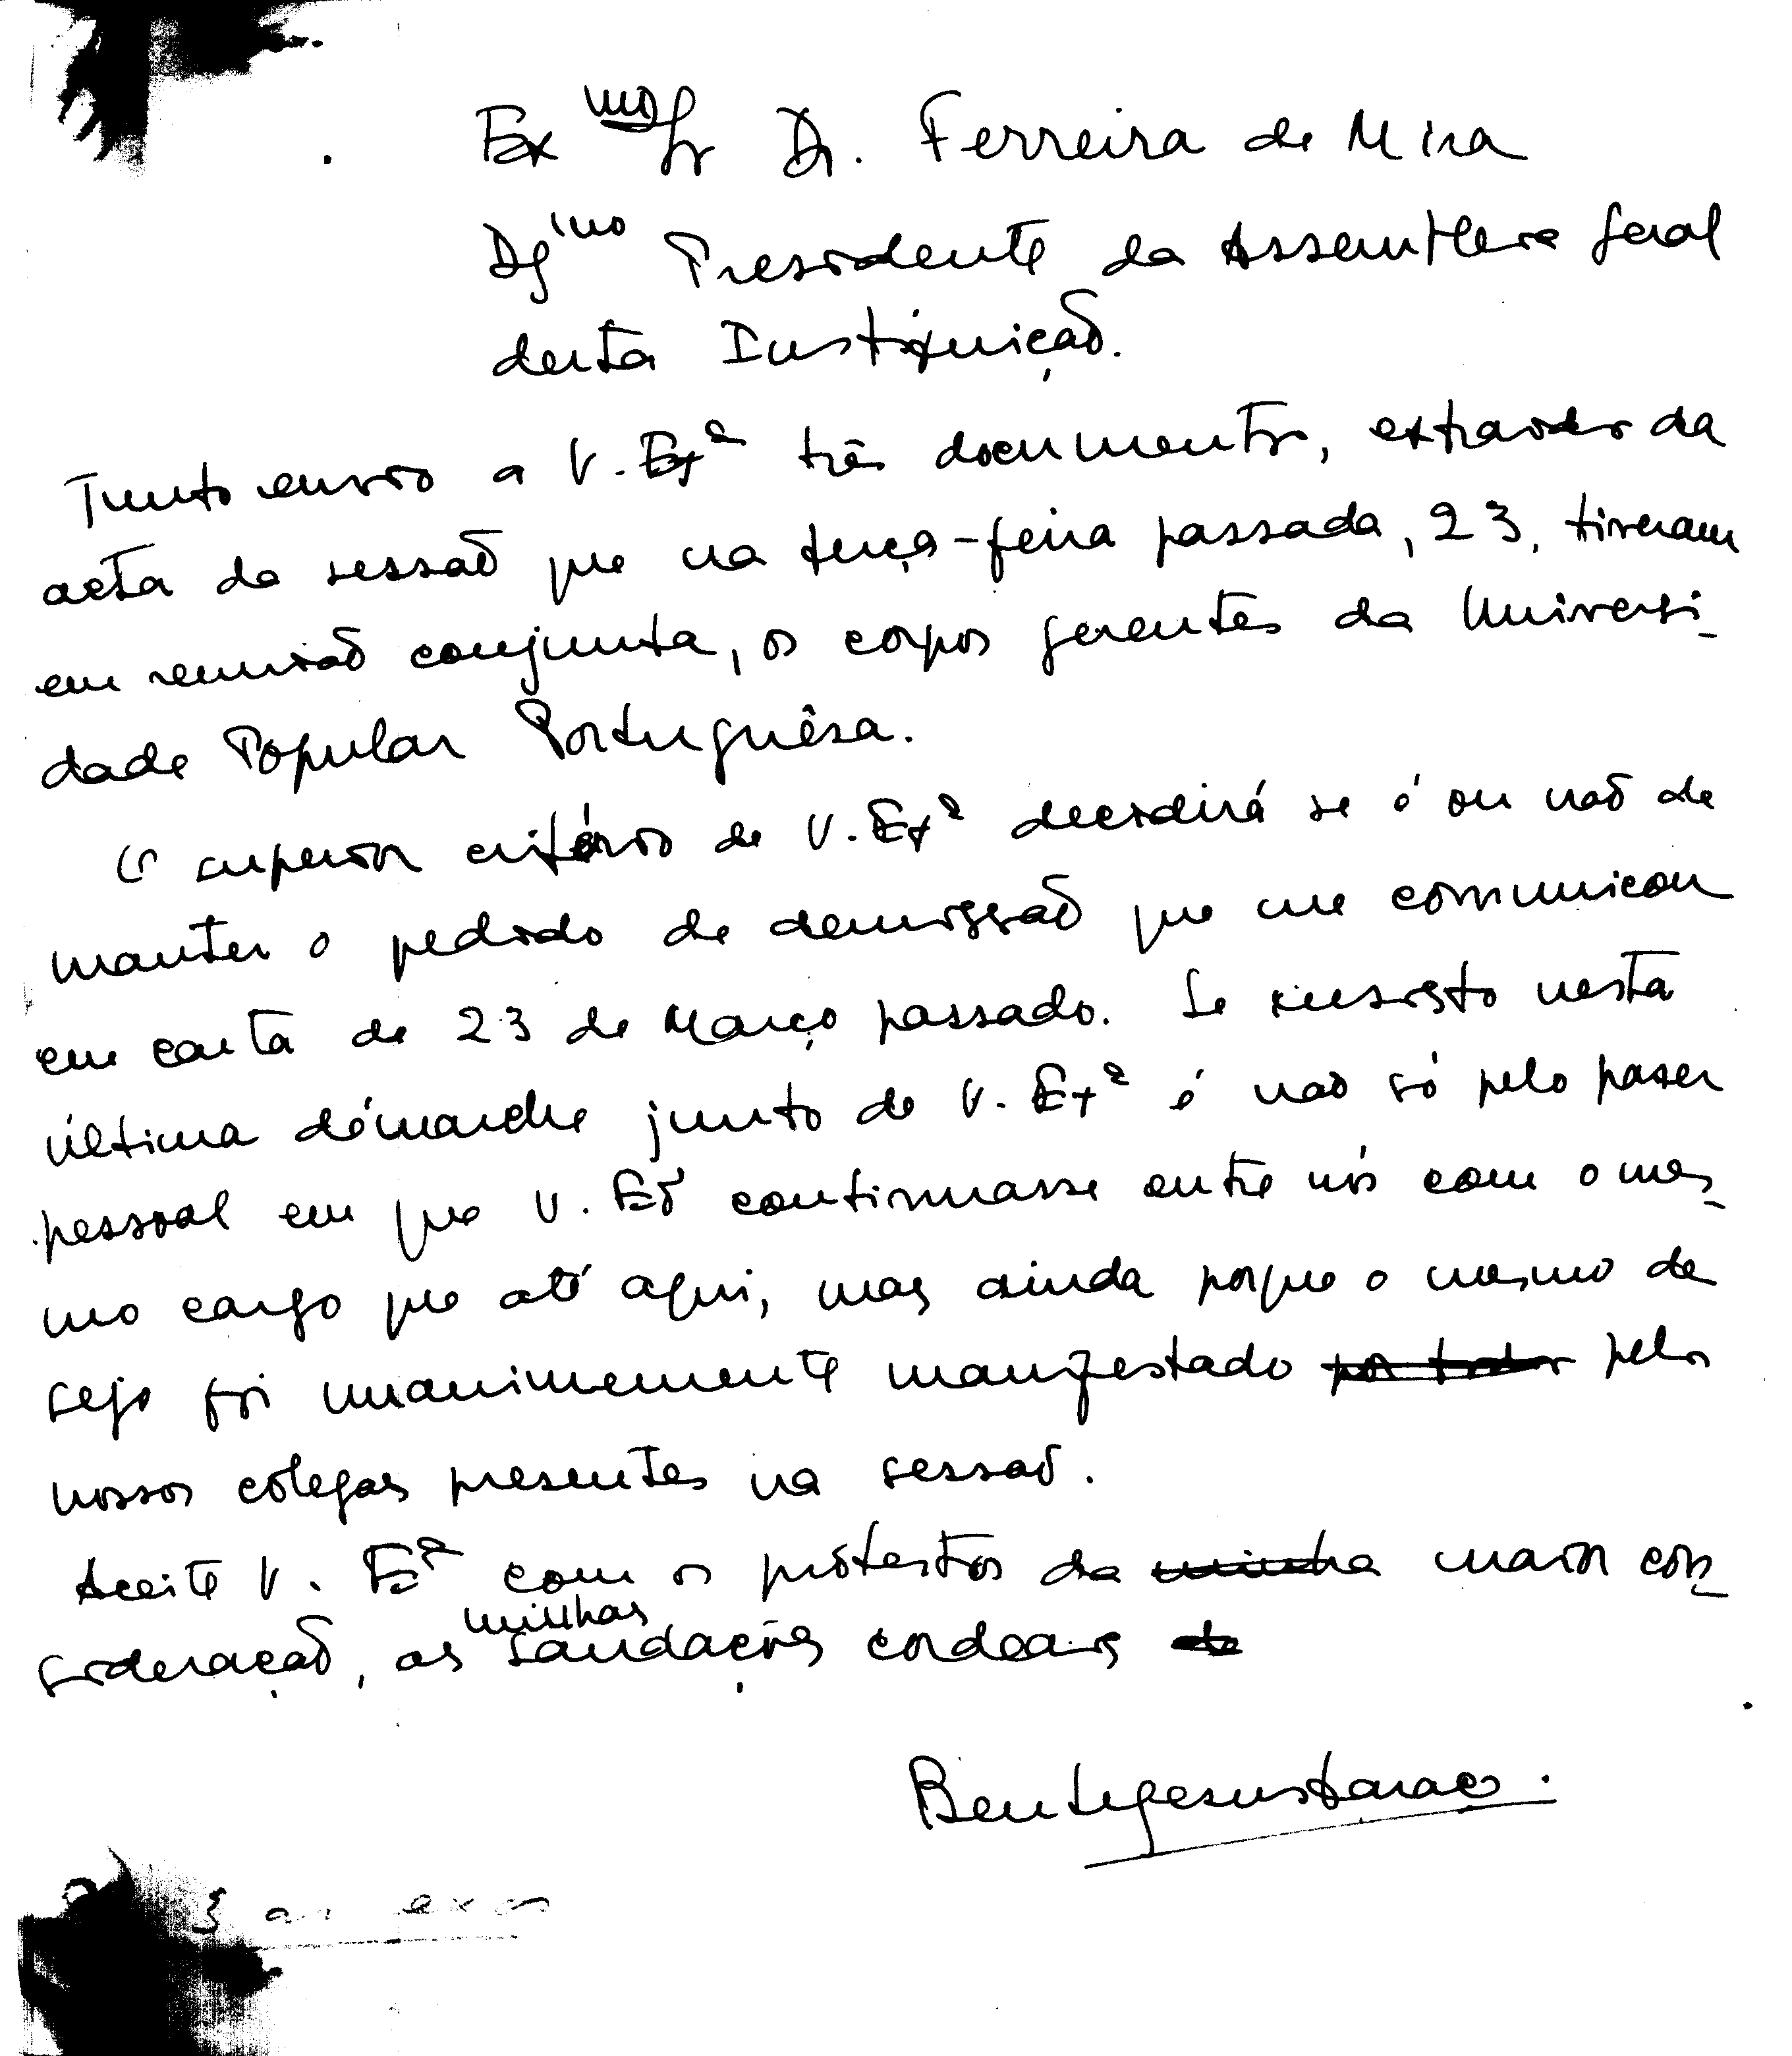 Ex mo Sr Dr. Ferreira de Mira
Dg mo Presidente da Assembleia Geral
desta Instituição.
Junto envio a V. Exª três documentos, extraidos da
acta da sessão que na terça-feira passada, 23, tiveram
em reunião conjunta, os corpos gerentes da Universi-
dade Popular Portuguêsa.
O superior critério de V. Exª decidirá se é ou não de
manter o pedido de demissão que me comunicou
em carta de 23 de Março passado. Se insisto nesta
última démarche junto de V. Exª é não só pelo prazer
pessoal em que V. Exª continuasse entre nós com o mes-
mo cargo que até aqui, mas ainda porque o mesmo de
sejo foi unanimemente manifestado por todos pelos
nossos colegas presentes na sessão.
Aceite V. Exª com os protestos da minha maior con-
sideração, as minhas saudações cordeais de
Bento Jesus Caraça.
3 anexos